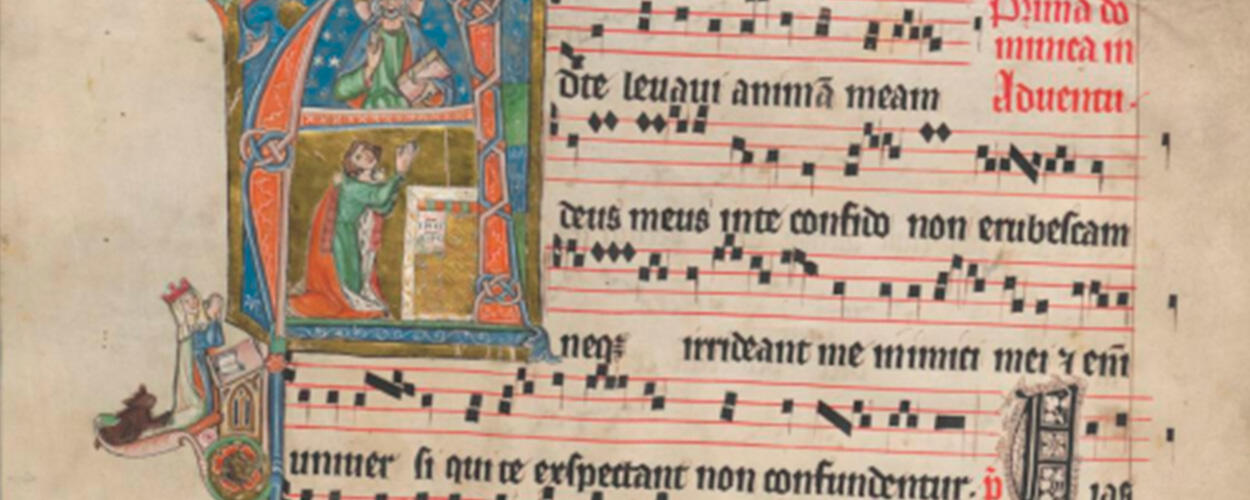 Prima do
minica in
Aduentu.
d te leuaui animā meam
deus meus inte confido non erubescam
neq; irrideant me inimici mei ⁊ em̄
uniuer si qui te exspectant non confundentur. p̄
ias